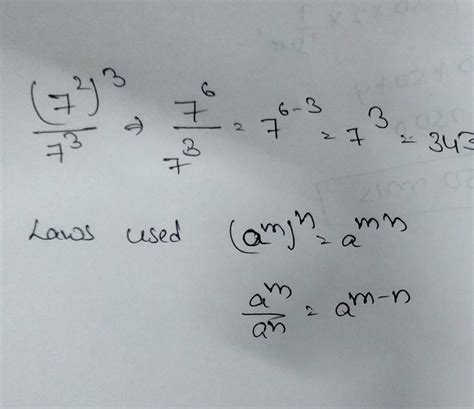 (7²)³/7³ ⇒ 7⁶/7³ = 7⁶⁻³ = 7³ = 343
Laws used (aᵐ)ⁿ = aᵐⁿ
aᵐ/aⁿ = aᵐ⁻ⁿ